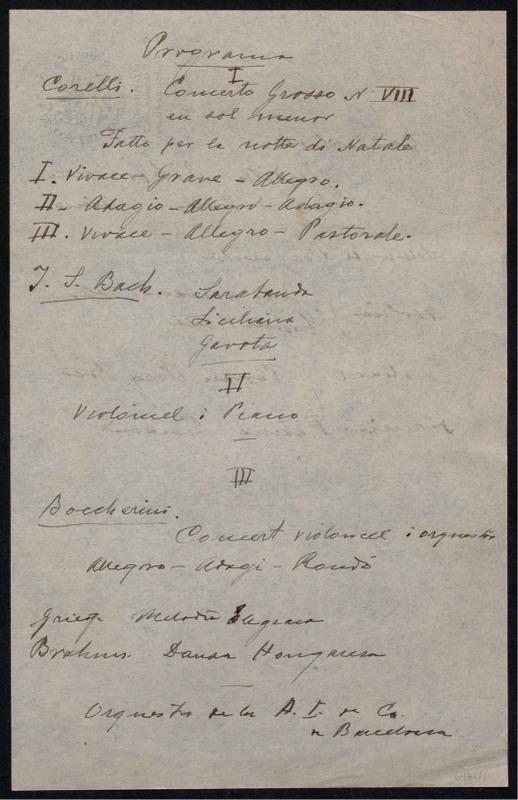 Programa
I
Corelli. Concerto Grosso N. VIII
en sol menor
Fatto per la notte di Natale
I. Vivace - Grave - Allegro.
II - Adagio - Allegro - Adagio.
III. Vivace - Allegro - Pastorale.
J. S. Bach. Sarabanda
Siciliana
Gavota
II
Violoncel i Piano
III
Boccherini.
Concert violoncel i orquestra
Allegro - Adagi - Rondó
Grieg. Melodia Elegiaca
Brahms. Dansa Hongaresa
Orquestra de la A. I. de
de Barcelona